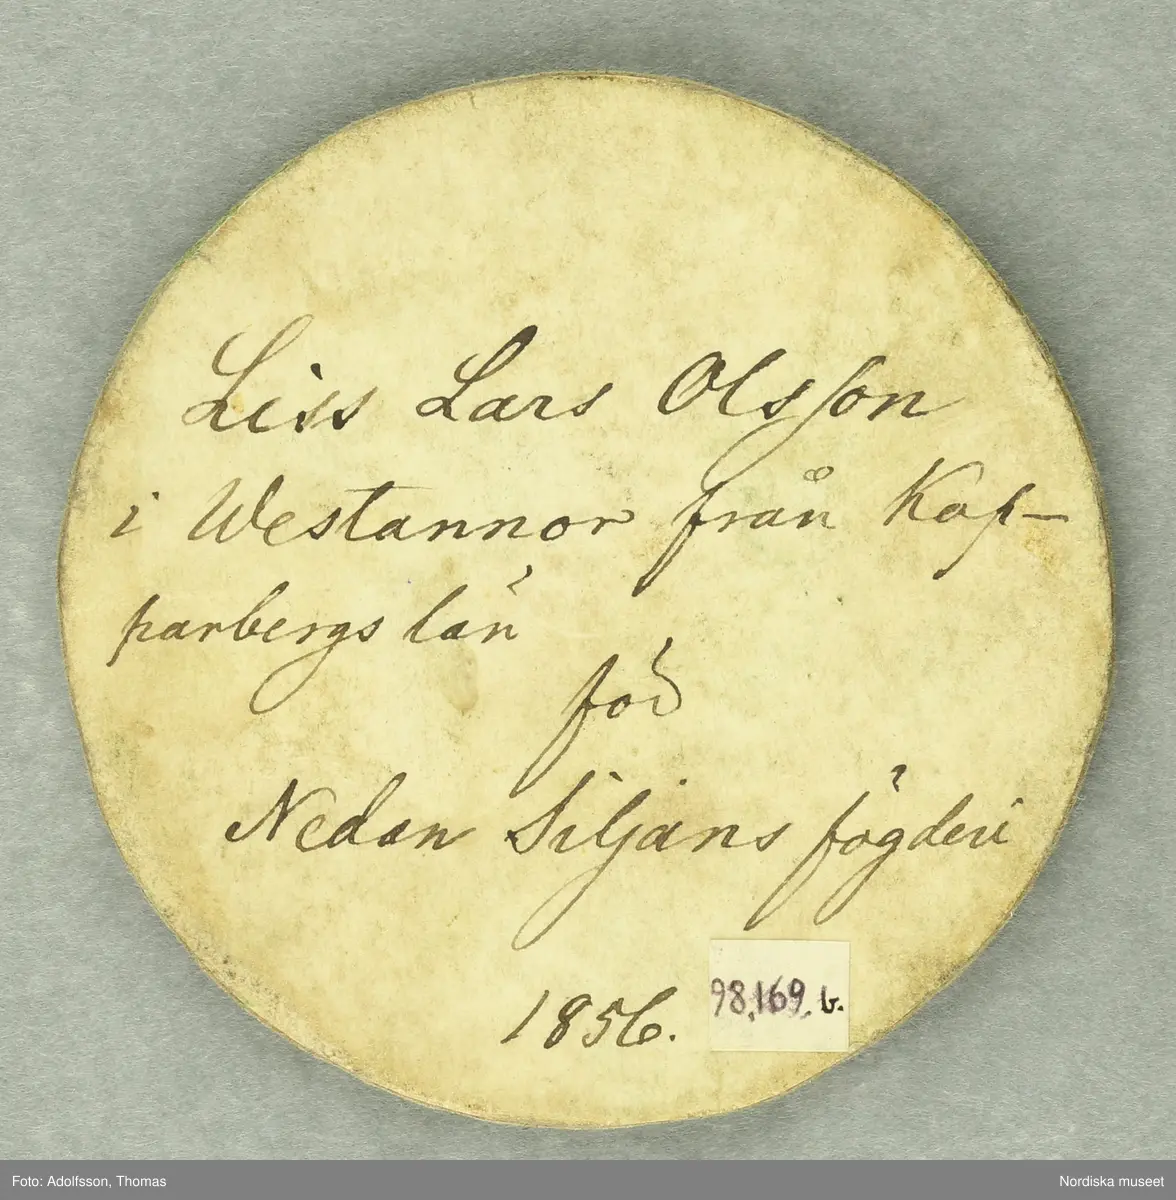 Liss Lars Olsson
i Westannor från Kop-
parbergs län
föd
Nedan Siljans fögderi
1856.
98,169. b.
Foto: Adolfsson, Thomas
Nordiska museet